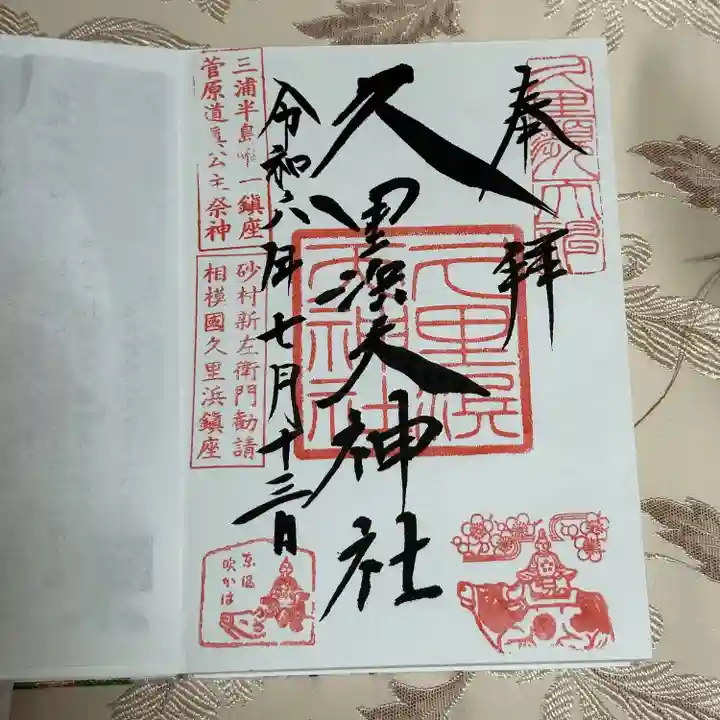 奉拝
久里浜天神社
令和六年七月十三日
三浦半島唯一鎮座
菅原道真公主祭神
砂村新左衛門勧請
相模國久里浜鎮座
久里濱天神社
東風
吹かは